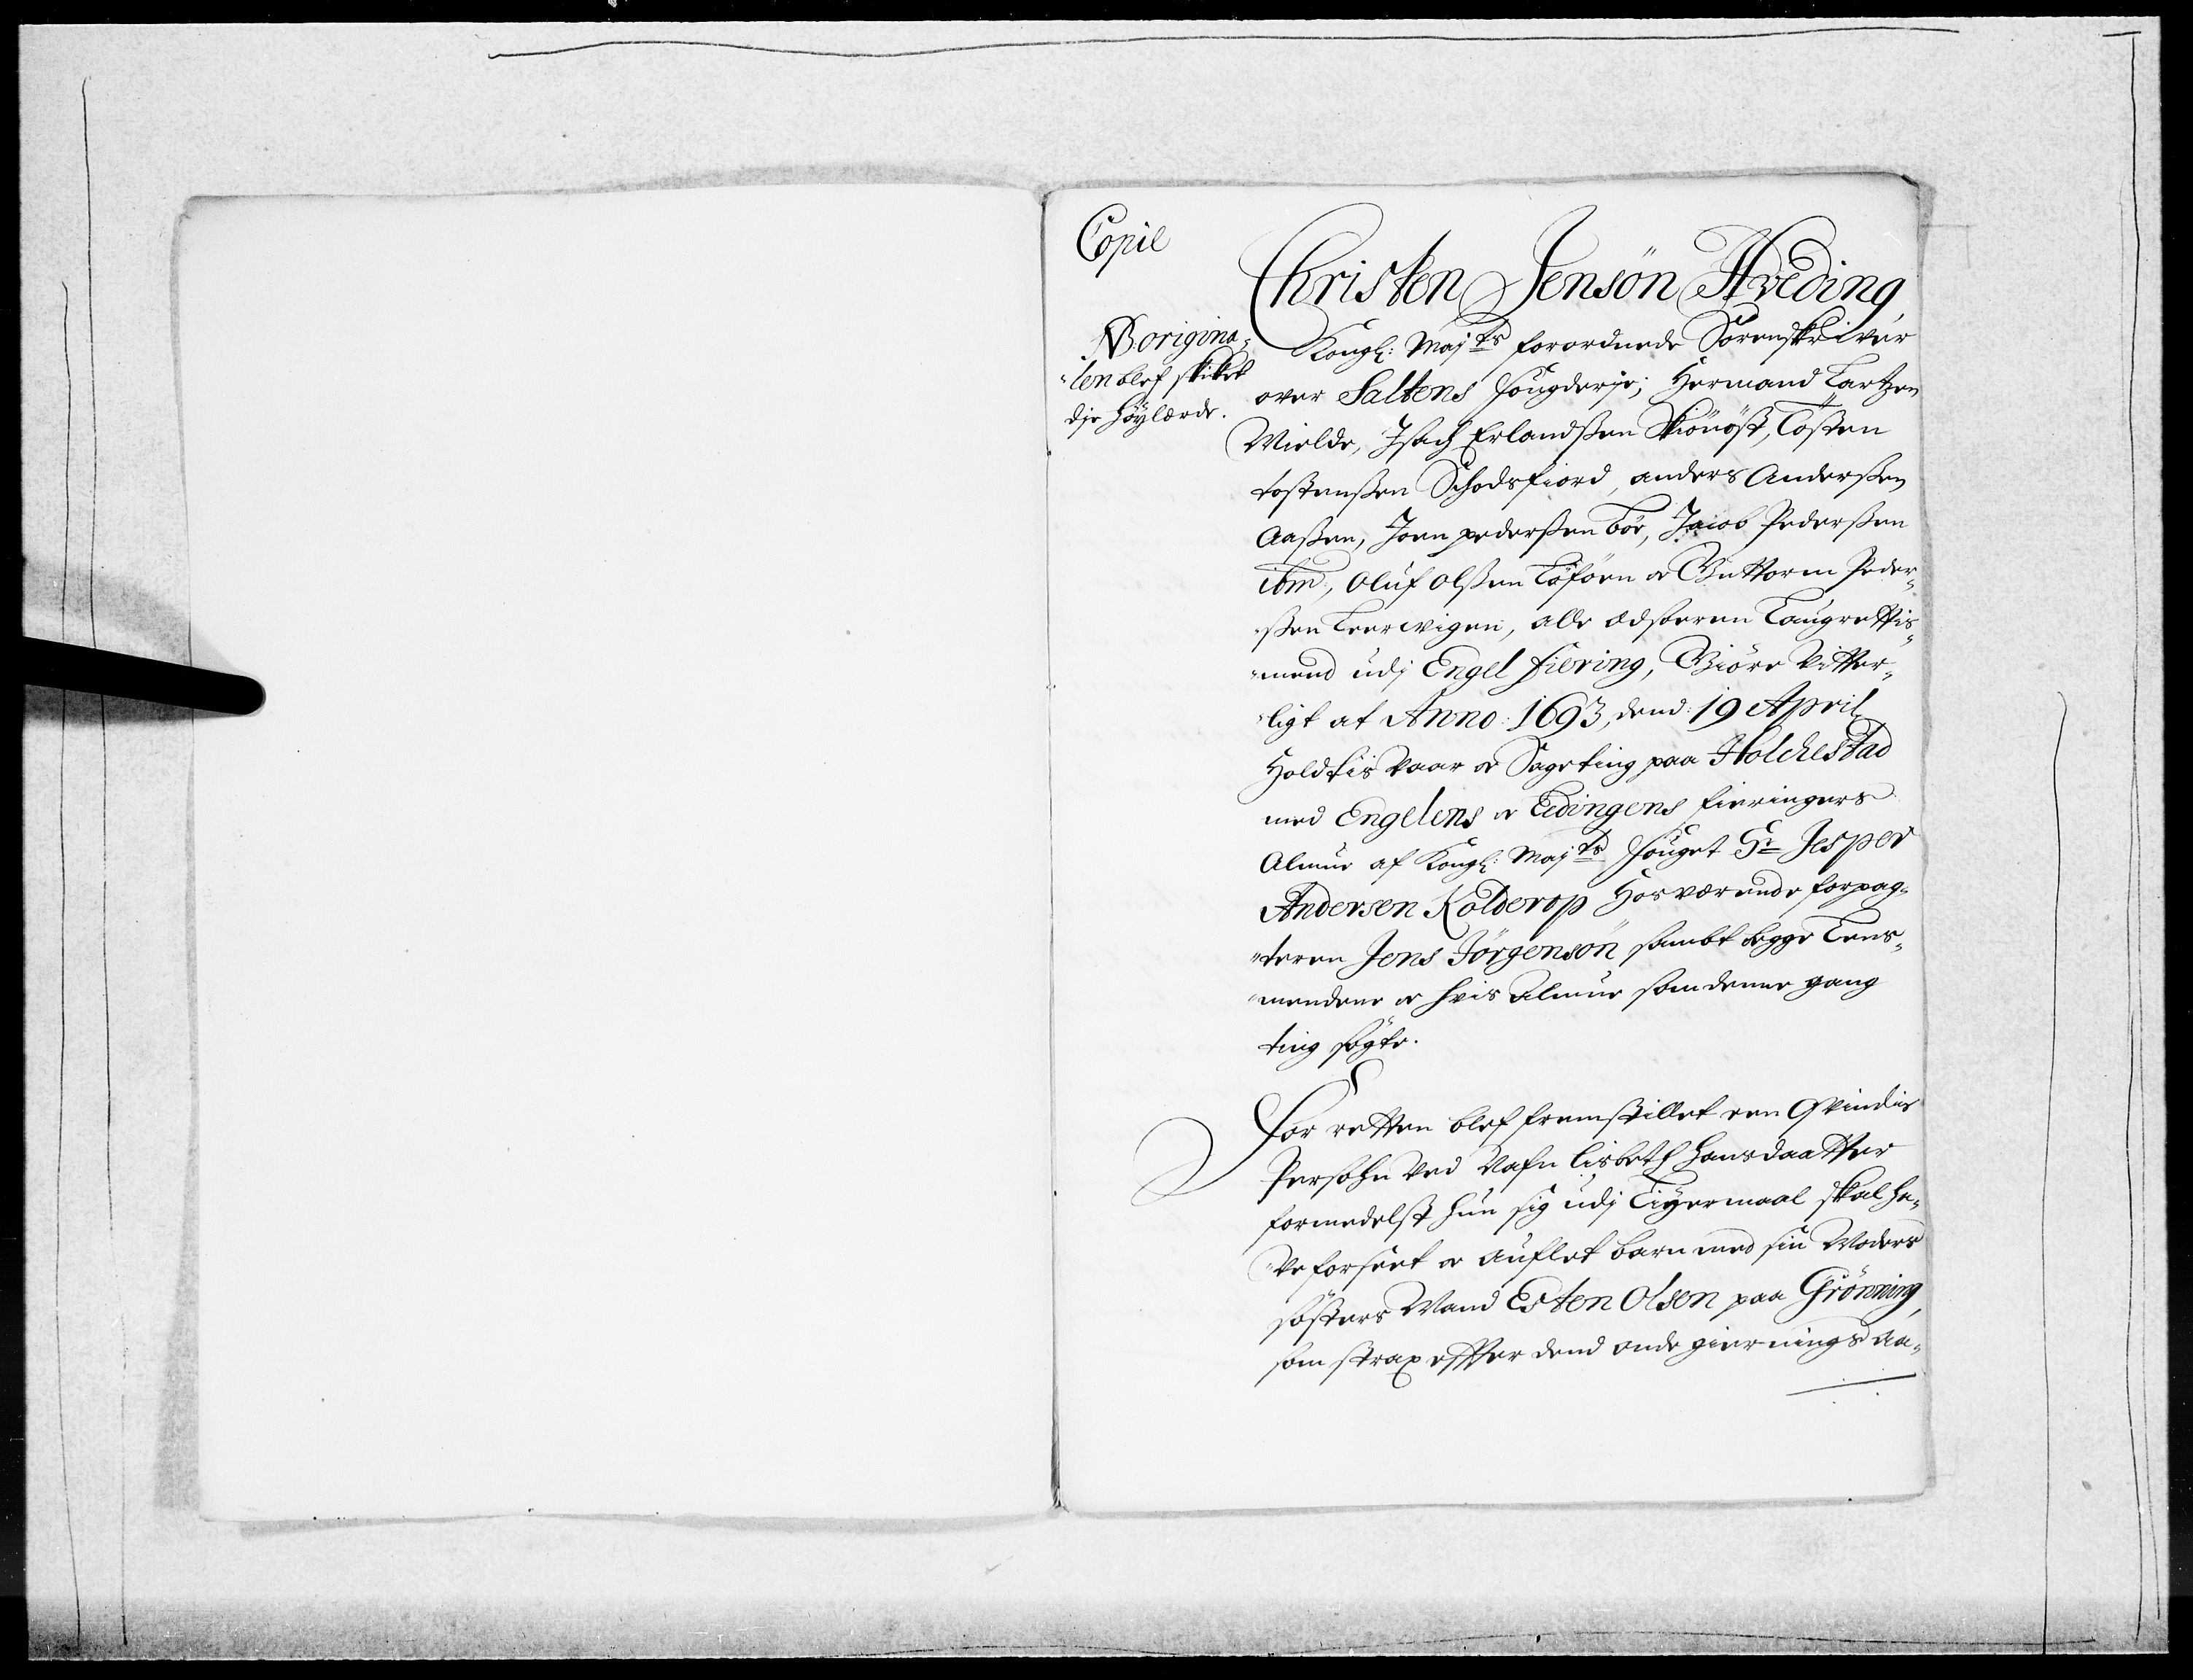 Copie
Christen Jensön Hveding
NB origina-
"len blef skiket
dje höylærde.
Kongl: Maj:ts forordnede Sorenskriver
over Saltens fougderje; Hermand Lartzen
Mielde, Isach Erlandssen Skiönöst, Tosten
tostenssen Schodsfiord, anders Anderssen
Aassen, Joen pederssen Böe, Jacob Pederssen
ibm, Oluf olssen Töföen og Guttorm Peder-
"ssen Leerwigen, alle Edsvoren Laugrettis-
"mend udj Engel fiering, Giöre Vitter-
"ligt at Anno: 1693, dend: 19 April
Holdtis Vaar og Sageting paa Holchestad
med Engelens og Eedingens fieringers
Almue af Kongl: Maj:ts fouget Sr Jesper
Andersen Kolderop Hosværende forpag-
"teren Jens Jörgensön sambt begge Lens-
"mendene og hvis Almue som denne gang
ting sögte.
For retten blef fremstillet een Qvindis
Persohn Ved Nafn Lisbeth Hansdaatter
formedelst hun sig udj Leyermaal skal ha-
"Ve forseet og Auflet barn med sin Moders
sösters Mand Esten Olsen paa Grönning,
som strax effter dend onde giernings Aa-